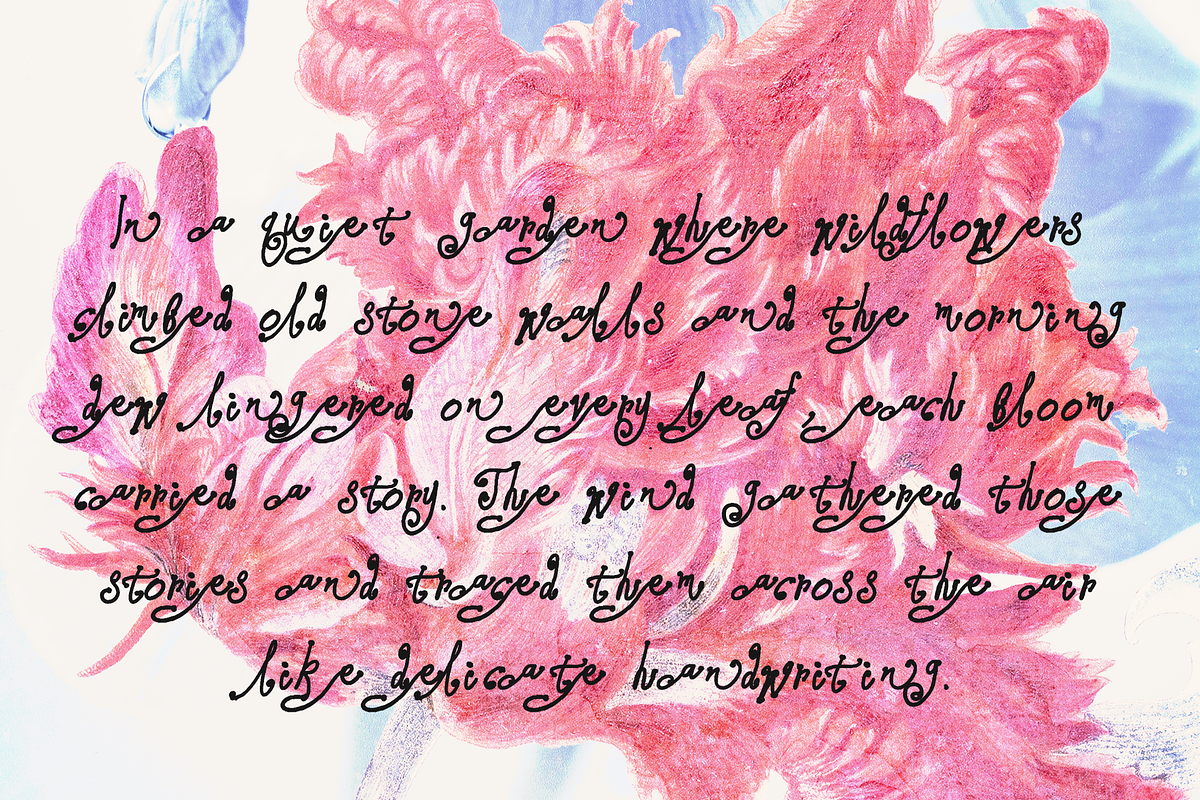 In a quiet garden where wildflowers
climbed old stone walls and the morning
dew lingered on every leaf, each bloom
carried a story. The wind gathered those
stories and traced them across the air
like delicate handwriting.